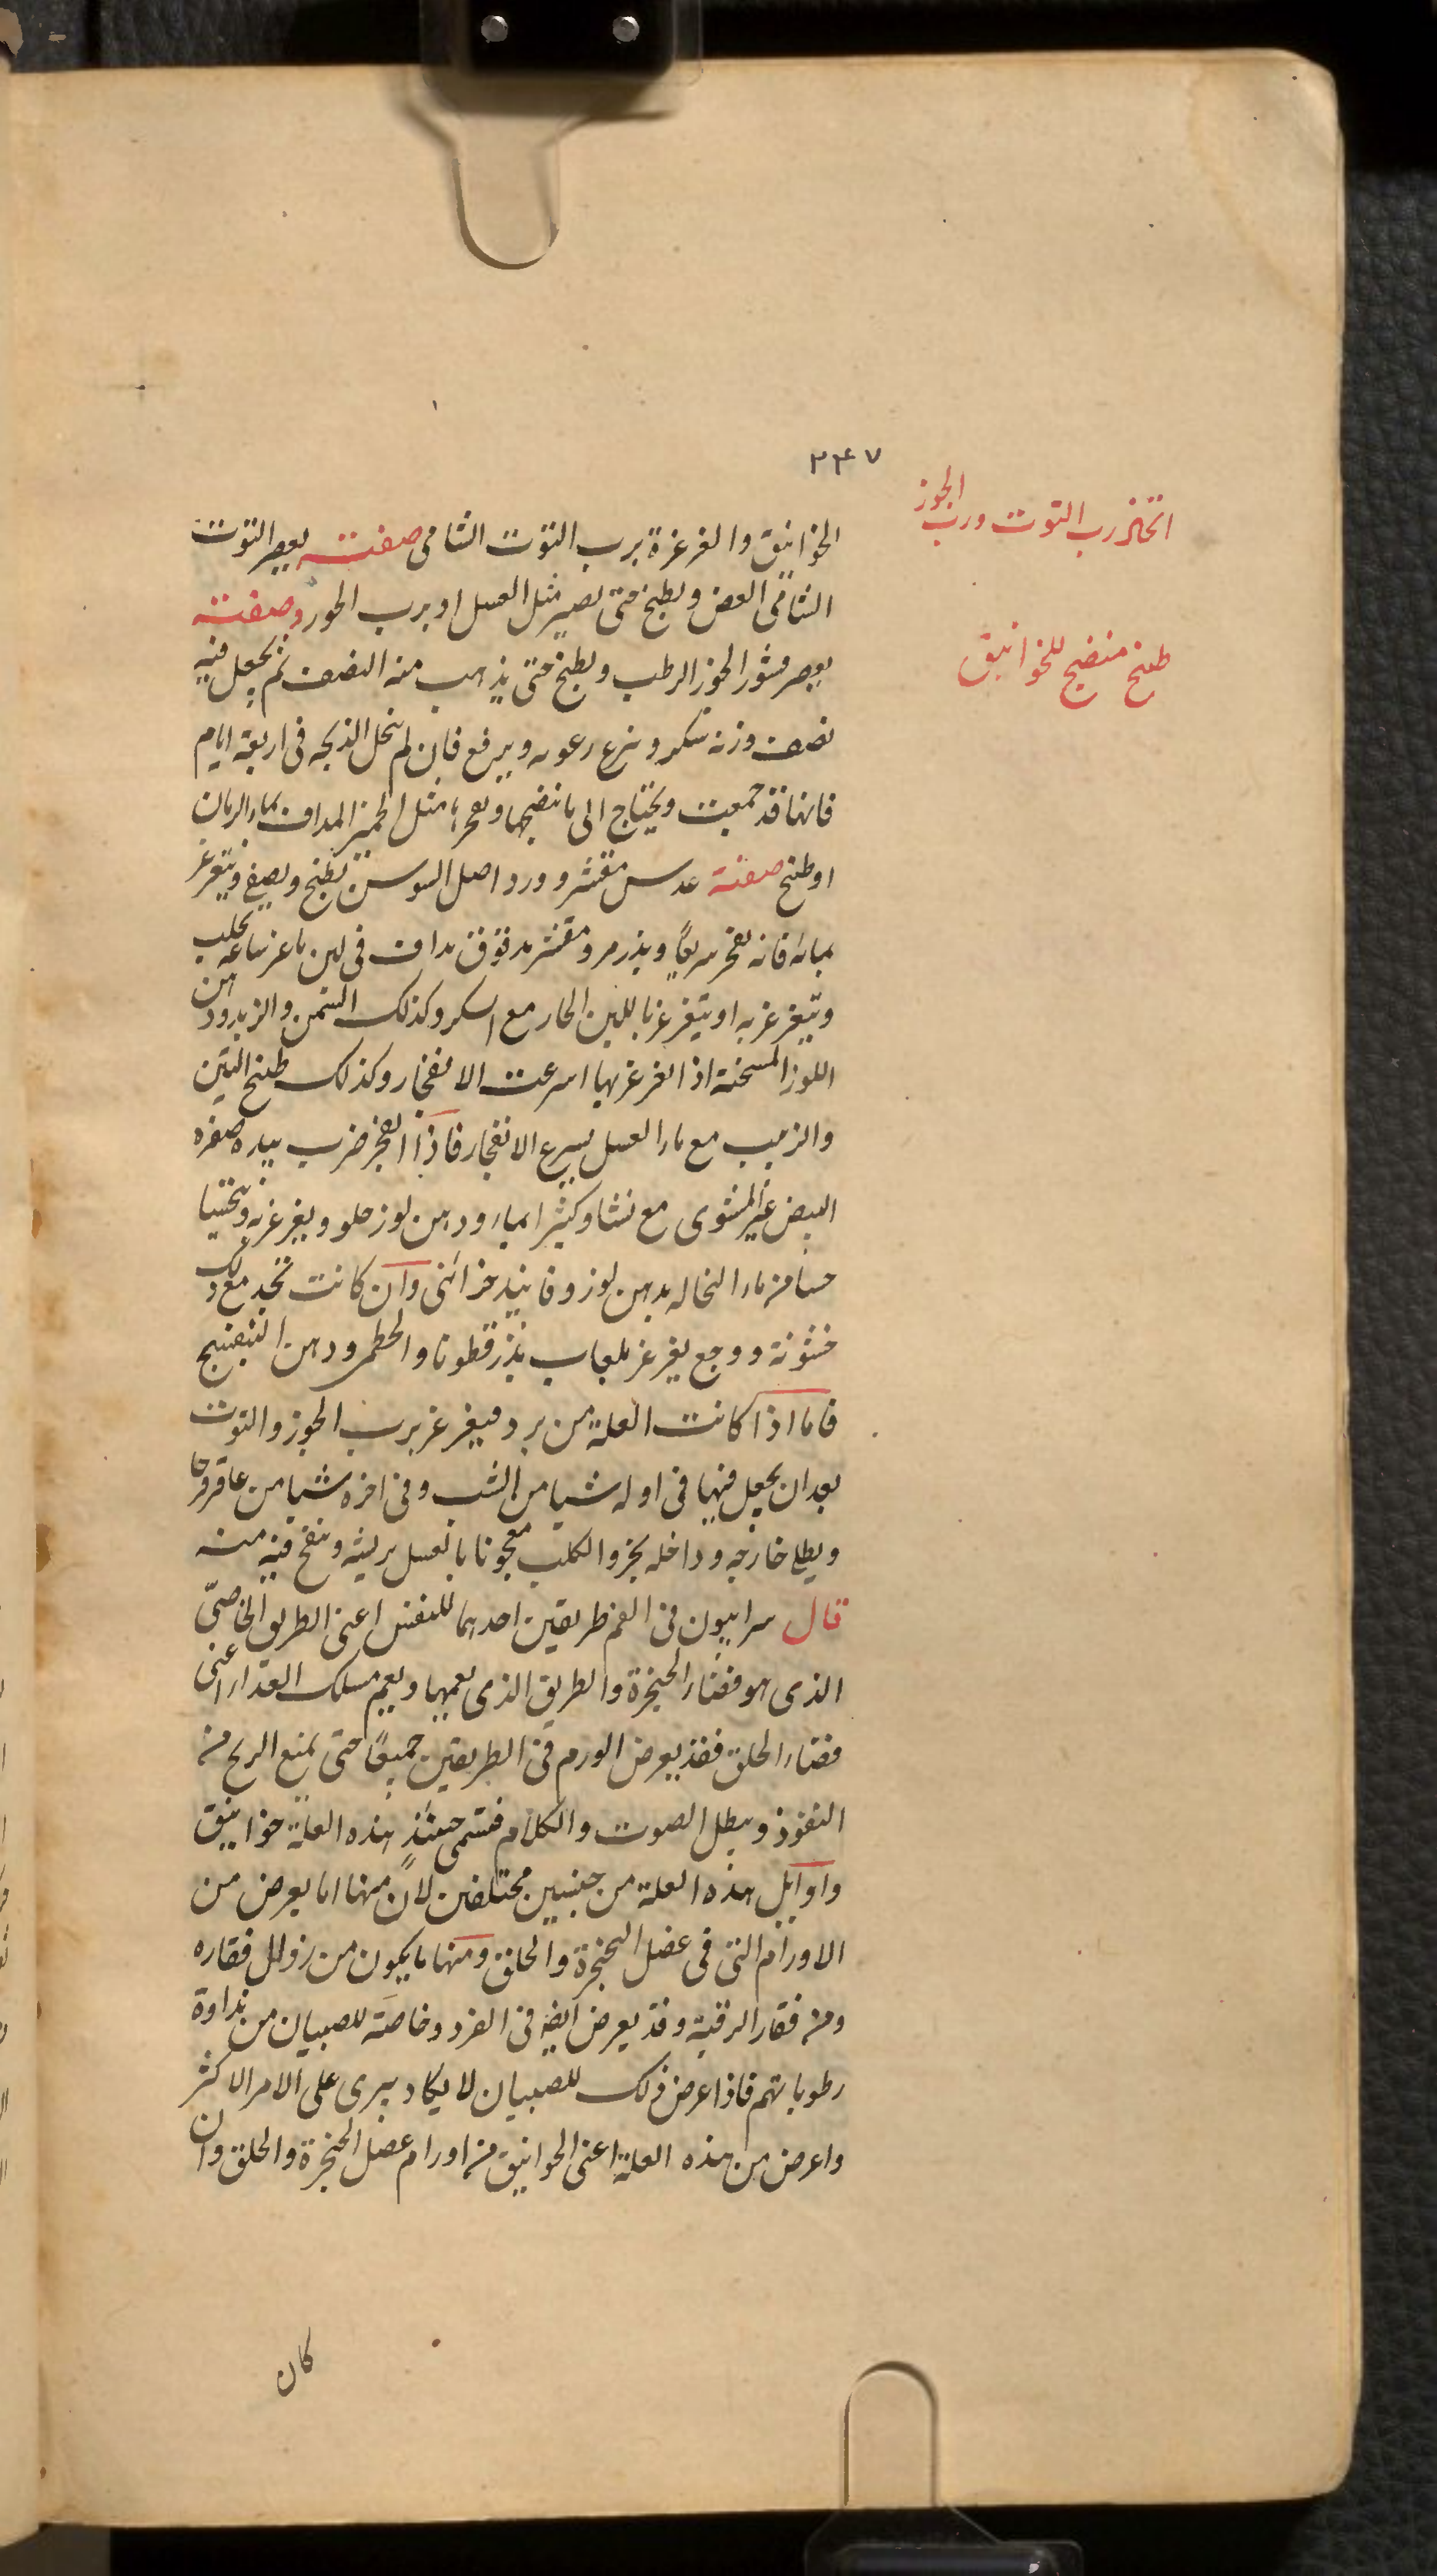 ٢٤٧
اتخاذ رب التوت ورب الجوز
الخوانيق والغرغرة برب التوت الشامى صفته يعصر التوت
الشامى الغض ويطبخ حتى يصير مثل العسل او برب الجوز وصفته
يعصر قشور الجوز الرطب ويطبخ حتى يذهب منه النصف ثم يجعل فيه
طبخ منضج للخوانيق
نصف وزنه سكر وينزع رغوته ويرفع فان لم تنحل الذبحه فى اربعة ايام
فانها قد جمعت ويحتاج الى ما ينضجها ويفجرها مثل الخمير المداف بماء الرمان
او طبخ صفته عدس مقشر وورد اصل السوسن يطبخ ويصفى ويتغرغر
بمائه فانه يفجر سريعًا وبذر مرو مقشر مدقوق مداف فى لبن ماعز ساعه يحلب
ويتغرغر به او يتغرغر باللبن الحار مع السكر وكذلك السمن والزبد ودهن
اللوز المسخنة اذا تغرغر بها اسرعت الانفجار وكذلك طبخ التين
والزبيب مع ماء العسل يسرع الانفجار فاذا انفجر ضرب بيده صفره
البيض غير المشوى مع نشا وكثيرا بماء ودهن لوز حلو ويغرغر به ويتحسا
حسا من ماء النخاله بدهن لوز وفانيذ خزائنى وان كانت تجد مع ذلك
خشونة ووجع يغرغر بلعاب بذر قطونا والخطمى ودهن البنفسج
فاما اذا كانت العلة من برد فيغرغر برب الجوز والتوت
بعد ان يجعل فيها فى اوله شيا من الشب وفى اخره شيا من عاقرقرحا
ويطلى خارجه وداخله بخرو الكلب معجونا بالعسل بريشه وينفخ فيه منه
قال سرابيون فى الفم طريقين احدهما للنفس اعنى الطريق الخاصّى
الذى هو فضاء الحنجرة والطريق الذى يعمها ويعم مسلك الغذاء اعنى
فضاء الحلق فقد يعرض الورم فى الطريقين جميعًا حتى يمنع الريح من
النفوذ ويبطل الصوت والكلام فتسمى حينئذٍ هذه العلة خوانيق
واوايل هذه العلة من جنسين مختلفين لان منها اما يعرض من
الاورام التى فى عضل الحنجرة والحلق ومنها ما يكون من زوال فقاره
من فقار الرقبة وقد يعرض ايضه فى الفرد وخاصّة للصبيان من نداوة
رطوباتهم فاذا عرض ذلك للصبيان لا يكاد يبرى على الامر الاكثر
واعرض من هذه العلة اعنى الخوانيق من اورام عضل الحنجرة والحلق وان
كان